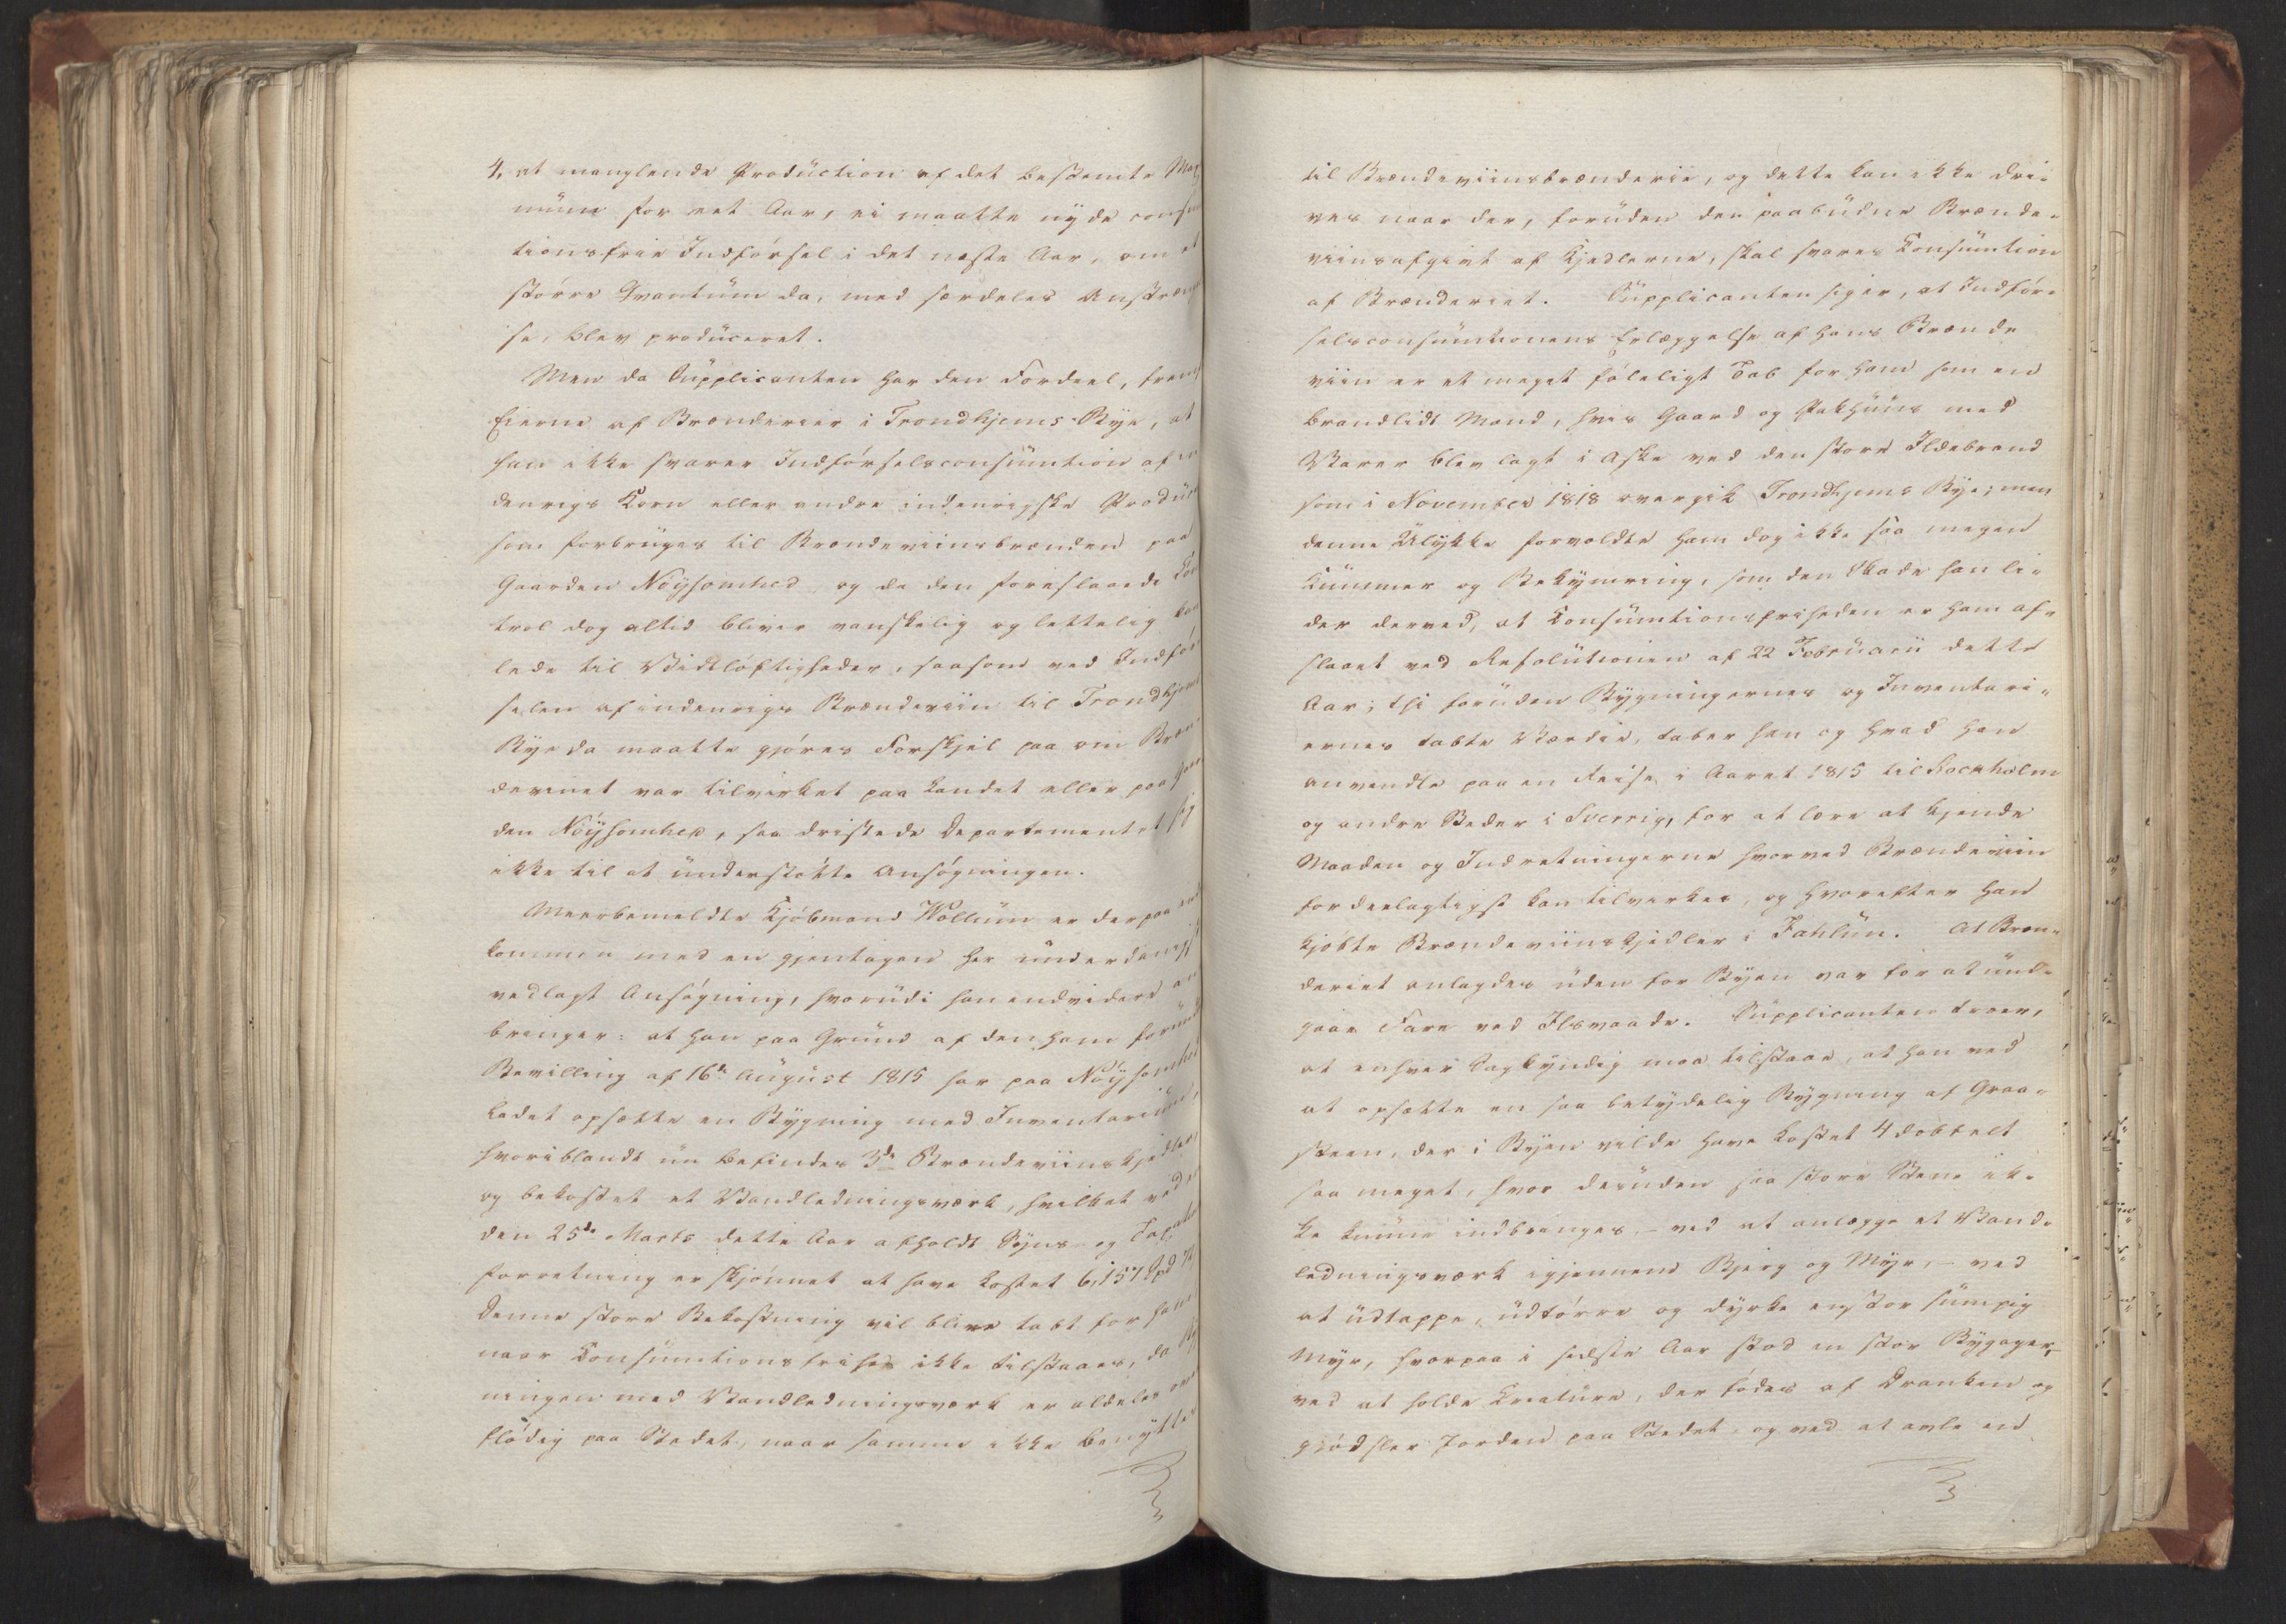 4, at manglende Production af det bestemte Maxi
mum for eet Aar, ei maatte nyde consum
tionsfrie Indførsel i det næste Aar, om et
større Qvantum da, med særdeles Anstrengel
se, blev produceret.
Men da Supplicanten har den Fordeel, fremfor
Eierne af Brænderier i Trondhjems Bye, at
han ikke svarer Indførselsconsumtion af in
denrigs Korn eller andre indenrigske Produc
som forbruges til Brændeviinsbrænden paa
Gaarden Nøysomhed, og da den foreslaaede Con
trol dog altid bliver vanskelig og lettelig kan
lede til Vidtløftigheder, saasom ved Indfør
selen af indenrigs Brændeviin til Trondhjems
Bye da maatte gjøres Forskjel paa om Bræn
devinet var tilvirket paa Landet eller paa Gaar
den Nøysomhed, saa dristede Departementet sig
ikke til at understøtte Ansøgningen.
Meerbemeldte Kjøbmand Wollum er derpaa ind
kommen med en gjentagen her underdanigst
vedlagt Ansøgning, hvorudi han endvidere an
bringer: at han paa Grund af den ham forundte
Bevilling af 16de August 1815 har paa Nøysomhed
ladet opsætte en Bygning med Inventarium,
hvoriblandt nu befindes 3de Brændeviinskjedler,
og bekostet et Vandledningsværk, hvilket ved
den 25de Marts dette Aar afholdt Syns og Tax
forretning er skjønnet at have kostet 6,157 Spd
Denne store Bekostning vil blive tabt for ham
naar Consumtionsfrihed ikke tilstaaes, da Byg
ningen med Vandledningsværk er aldeles over
flødig paa Stedet, naar samme ikke benyttes
til Brændeviinsbrænderie, og dette kan ikke dri-
ves naar der, foruden den paabudne Brænde-
viinsafgivt af Kjedlerne, skal svares Consumtion
af Brænderiet. Supplicanten siger, at Indfør-
selsconsumtionens Erlæggelse af hans Brænde
viin er et meget føleligt Tab for ham som en
brandlidt Mand, hvis Gaard og Pakhuus med
Varer blev lagt i Aske ved den store Ildebrand
som i November 1818 overgik Trondhjems Bye; men
denne Ulykke forvoldte ham dog ikke saa megen
Kummer og Bekymring, som den Skade han li-
der derved, at Consumtionsfriheden er ham af-
slaaet ved Resolutionen af 22 Februarii dette
Aar; thi foruden Bygningernes og Inventari-
ernes tabte Værdie, taber han og hvad han
anvendte paa en Reise i Aaret 1815 til Stockholm
og andre Steder i Sverrig, for at lære at kjende
Maaden og Indretningerne hvorved Brændeviin
fordeelagtigst kan tilvirkes, og hvorefter han
kjøbte Brændeviinskjedler i Fahlun. At Bræn-
deriet anlagdes uden for Byen var for at und-
gaae Fare ved Ilsvaade. Supplicanten troer,
at enhver Sagkyndig maa tilstaae, at han ved
at opsætte en saa betydelig Bygning af Graa-
steen, der i Byen vilde have kostet 4 dobbelt
saa meget, hvor desuden saa store Stene ik-
ke kunne indbringes, - ved at anlægge et Vand-
ledningsværk igjennem Bjerg og Myr, - ved
at udtappe, udtørre og dyrke en stor sumpig
Myr, hvorpaa i sidste Aar stod en stor Bygager,
ved at holde Creature, der fødes af Dranken og
gjødsler Jorden paa Stedet, og ved at avle en